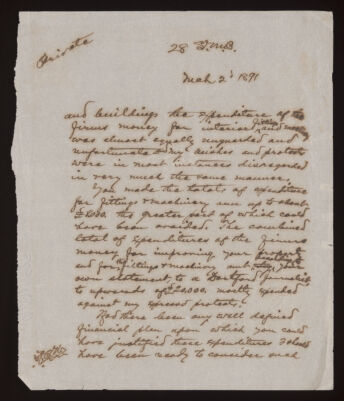 Private
28
March 2d 1891
and buildings the expenditure of the
firms money for interior fittings, and
was almost equally unguarded and
unfortunate and my wishes and protests
were in most instances disregarded
in very much the same manner.
You made the total of expenditure
for fittings & machinery sum up to about
the greater part of which could
have been avoided. The combined
total of expenditures of the firms
money for improving your property
and for fittings & machinery
own statement to a Dartford journalist
to upwards of £20,000. mostly expended
against my express protests.
Had there been any well defined
financial plan upon which you could
have justified these expenditures I should
have been ready to consider such